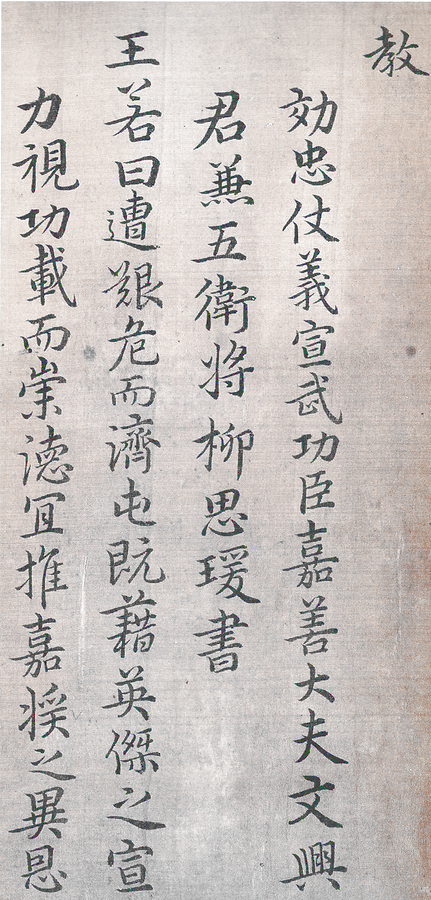 教
効忠仗義宣武功臣嘉善大夫文興
君兼五衛將柳思瑗書
王若曰遭艱危而濟屯既藉英傑之宣
力視功載而崇德宜推嘉奨之異恩